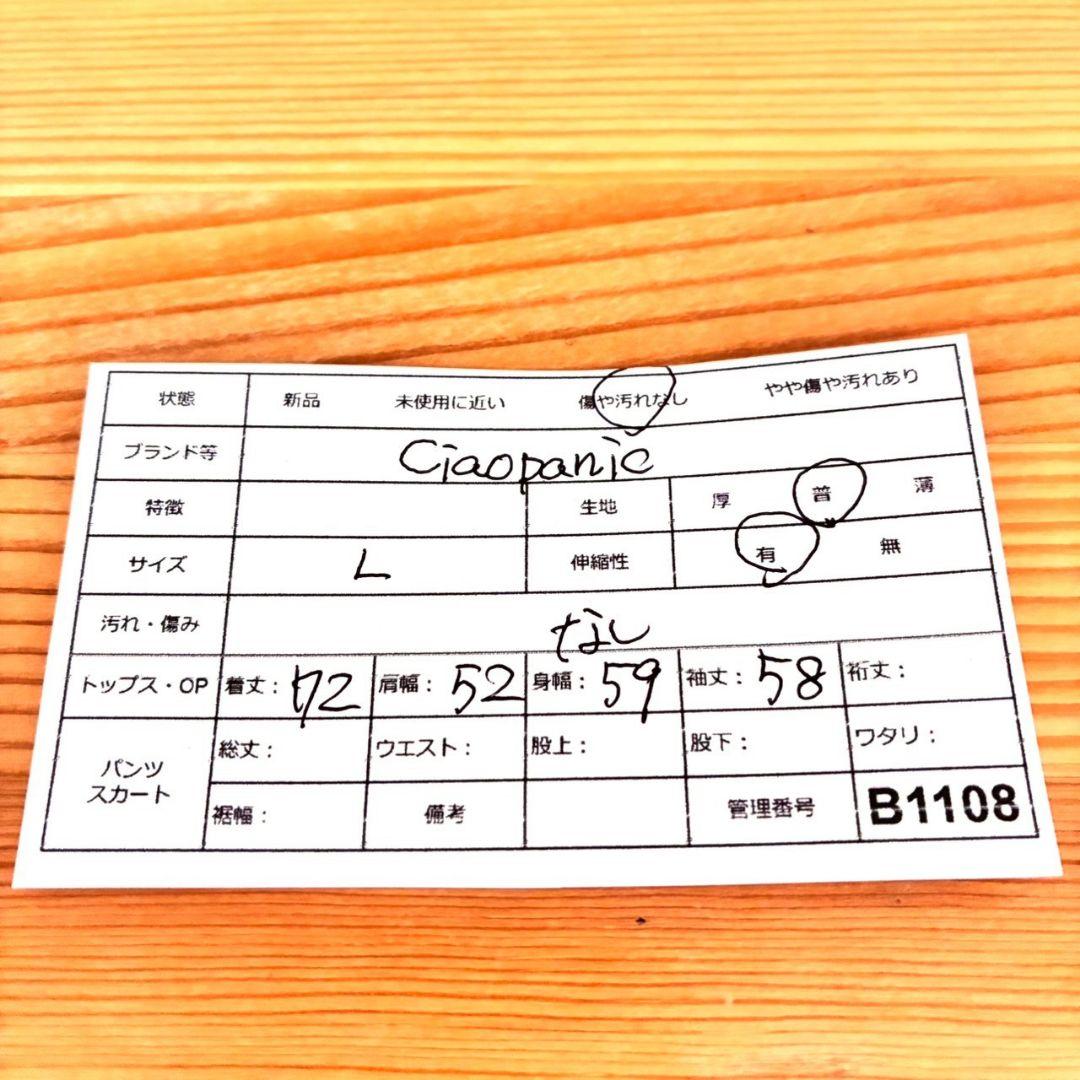 状態 新品 未使用に近い 傷や汚れなし やや傷や汚れあり
ブランド等 Ciaopanic
特徴 生地 厚 普 薄
サイズ L 伸縮性 有 無
汚れ・傷み なし
トップス・OP 着丈: 72 肩幅: 52 身幅: 59 袖丈: 58 裄丈:
パンツ
スカート
総丈: ウエスト: 股上: 股下: ワタリ:
裾幅: 備考 管理番号 B1108